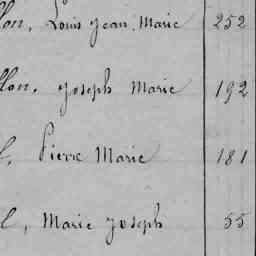 llon, Louis Jean Marie 252
llon, Joseph Marie 192
l, Pierre Marie 181
l, Marie Joseph 55